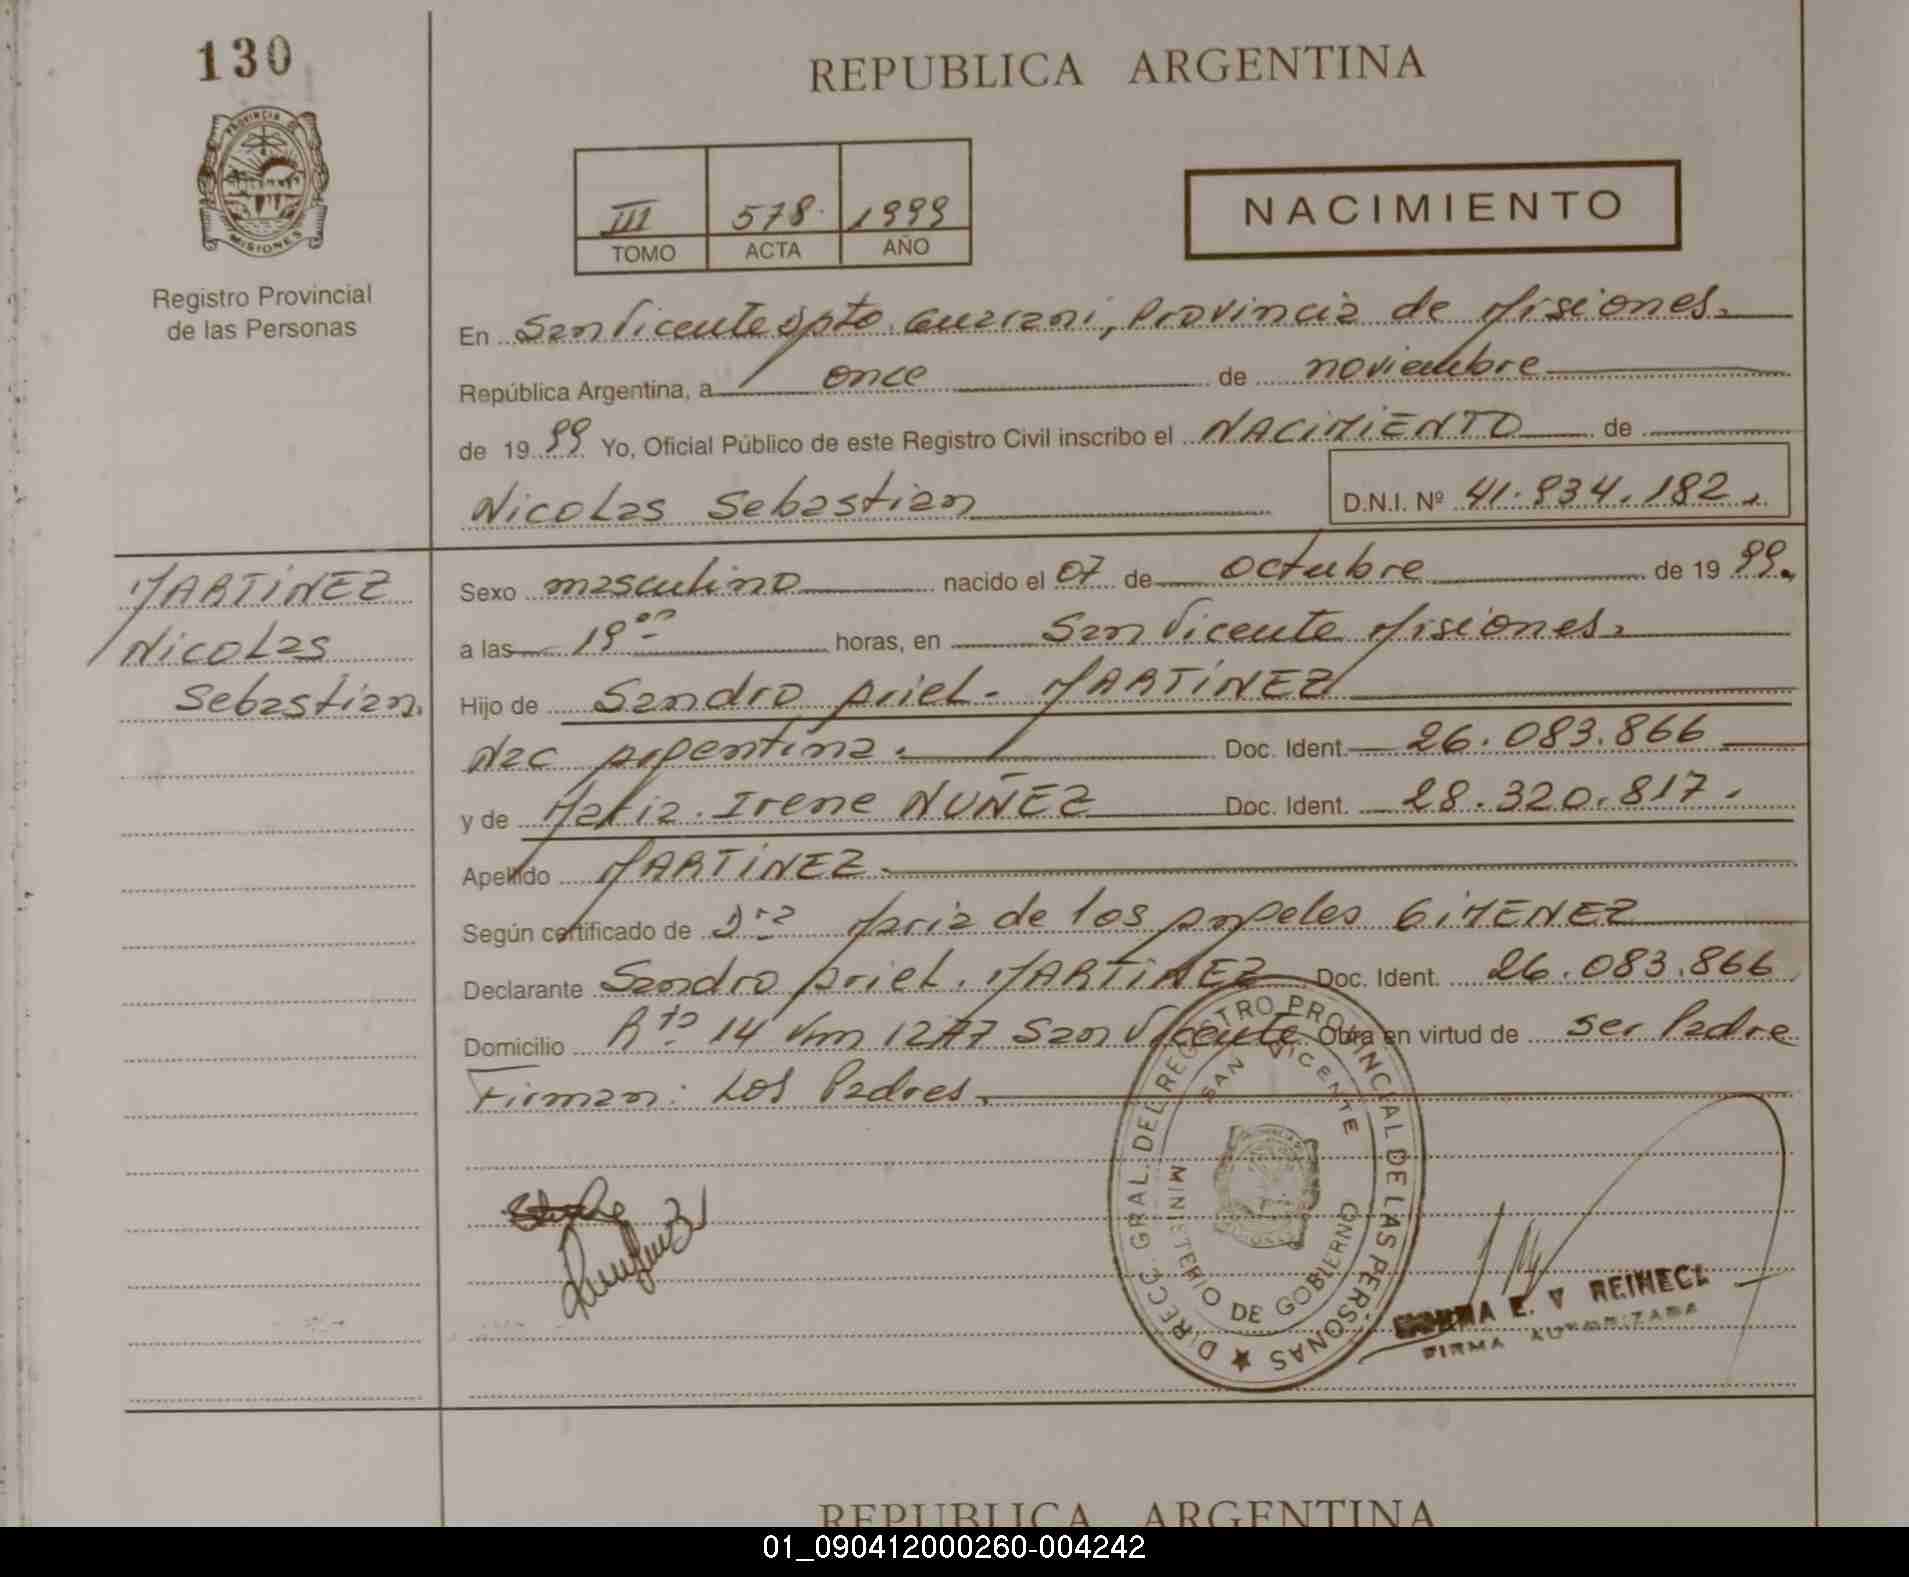 130
REPUBLICA ARGENTINA
PROVINCIA DE
MISIONES
Registro Provincial
de las Personas
III 578. 1999
TOMO ACTA AÑO
NACIMIENTO
En San Vicente Dpto. Guarani, Provincia de Misiones.
República Argentina, a once de noviembre
de 1999 Yo, Oficial Público de este Registro Civil inscribo el NACIMIENTO de
Nicolas Sebastian
D.N.I. Nº 41.834.182.
MARTINEZ
Nicolas
Sebastian.
Sexo masculino nacido el 07 de octubre de 1999.
a las 19 ºº horas, en San Vicente Misiones.
Hijo de Sandro Ariel. MARTINEZ
Nac Argentina. Doc. Ident. 26.083.866
y de Maria. Irene NUÑEZ Doc. Ident. 28.320.817.
Apellido MARTINEZ
Según certificado de Dra Maria de los Angeles GIMENEZ
Declarante Sandro Ariel. MARTINEZ Doc. Ident. 26.083.866
Domicilio Rta 14 km 1277 San Vicente Obra en virtud de ser Padre
Firman: Los Padres.
DIREC. GRAL. DEL REGISTRO PROVINCIAL DE LAS PERSONAS
SAN VICENTE
MINISTERIO DE GOBIERNO
NORMA E. V REINECK
FIRMA AUTORIZADA
REPUBLICA ARGENTINA
01_090412000260-004242